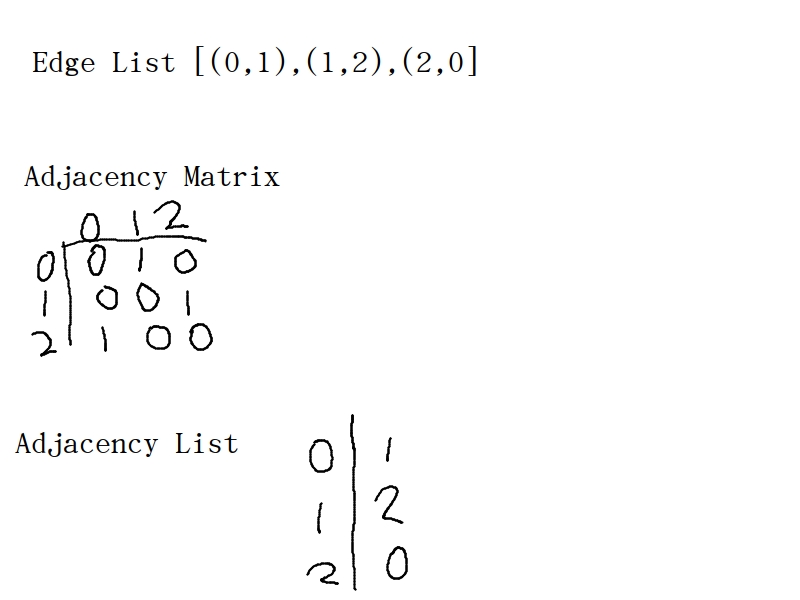 Edge List [(0,1),(1,2),(2,0]
Adjacency Matrix
0 1 2
0 0 1 0
1 0 0 1
2 1 0 0
Adjacency List
0 1
1 2
2 0